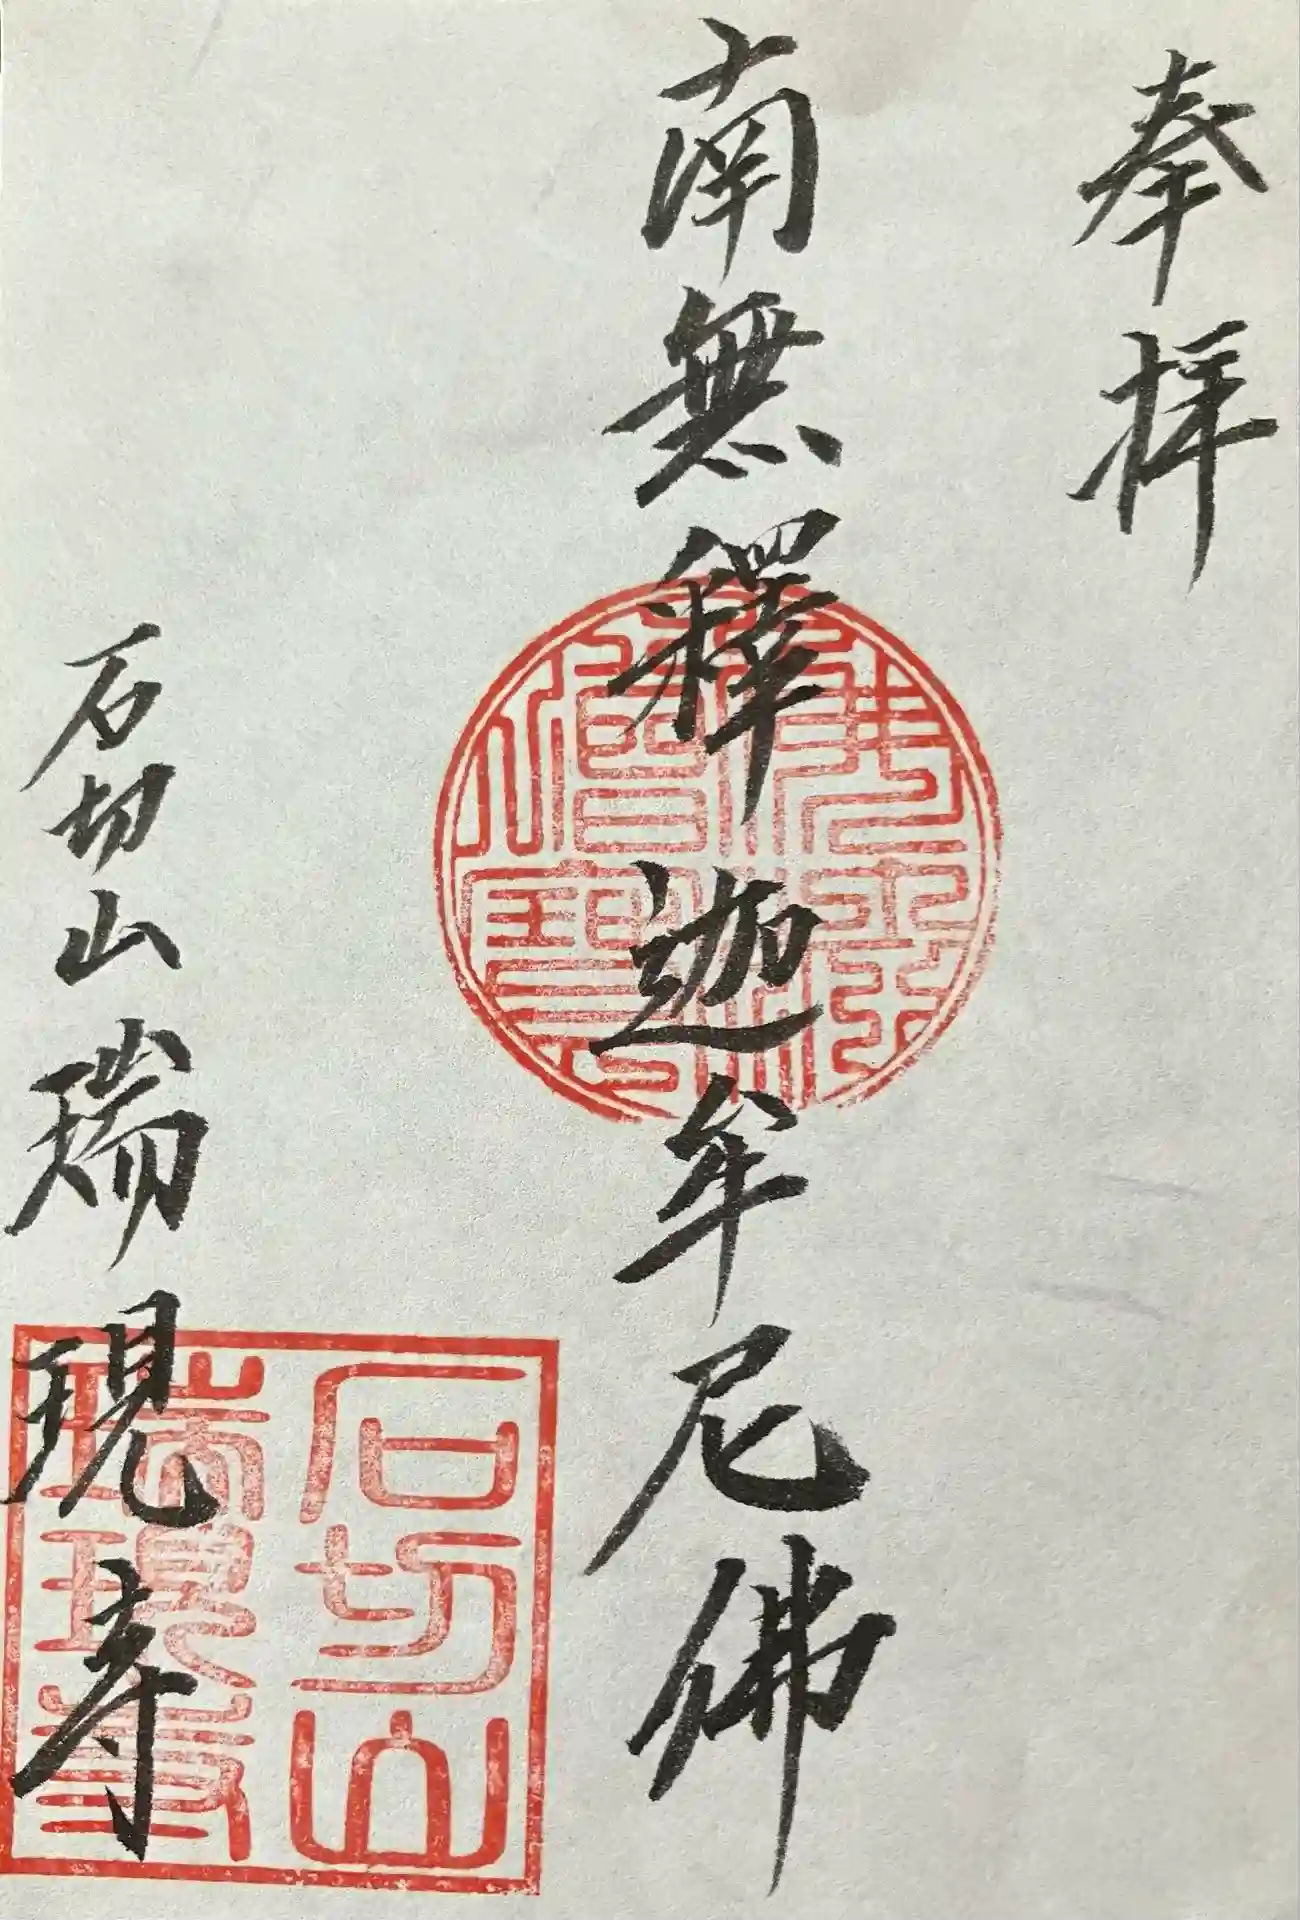 奉拝
南無釋迦牟尼佛
佛法僧寶
石切山瑞現寺
石切山
瑞現寺